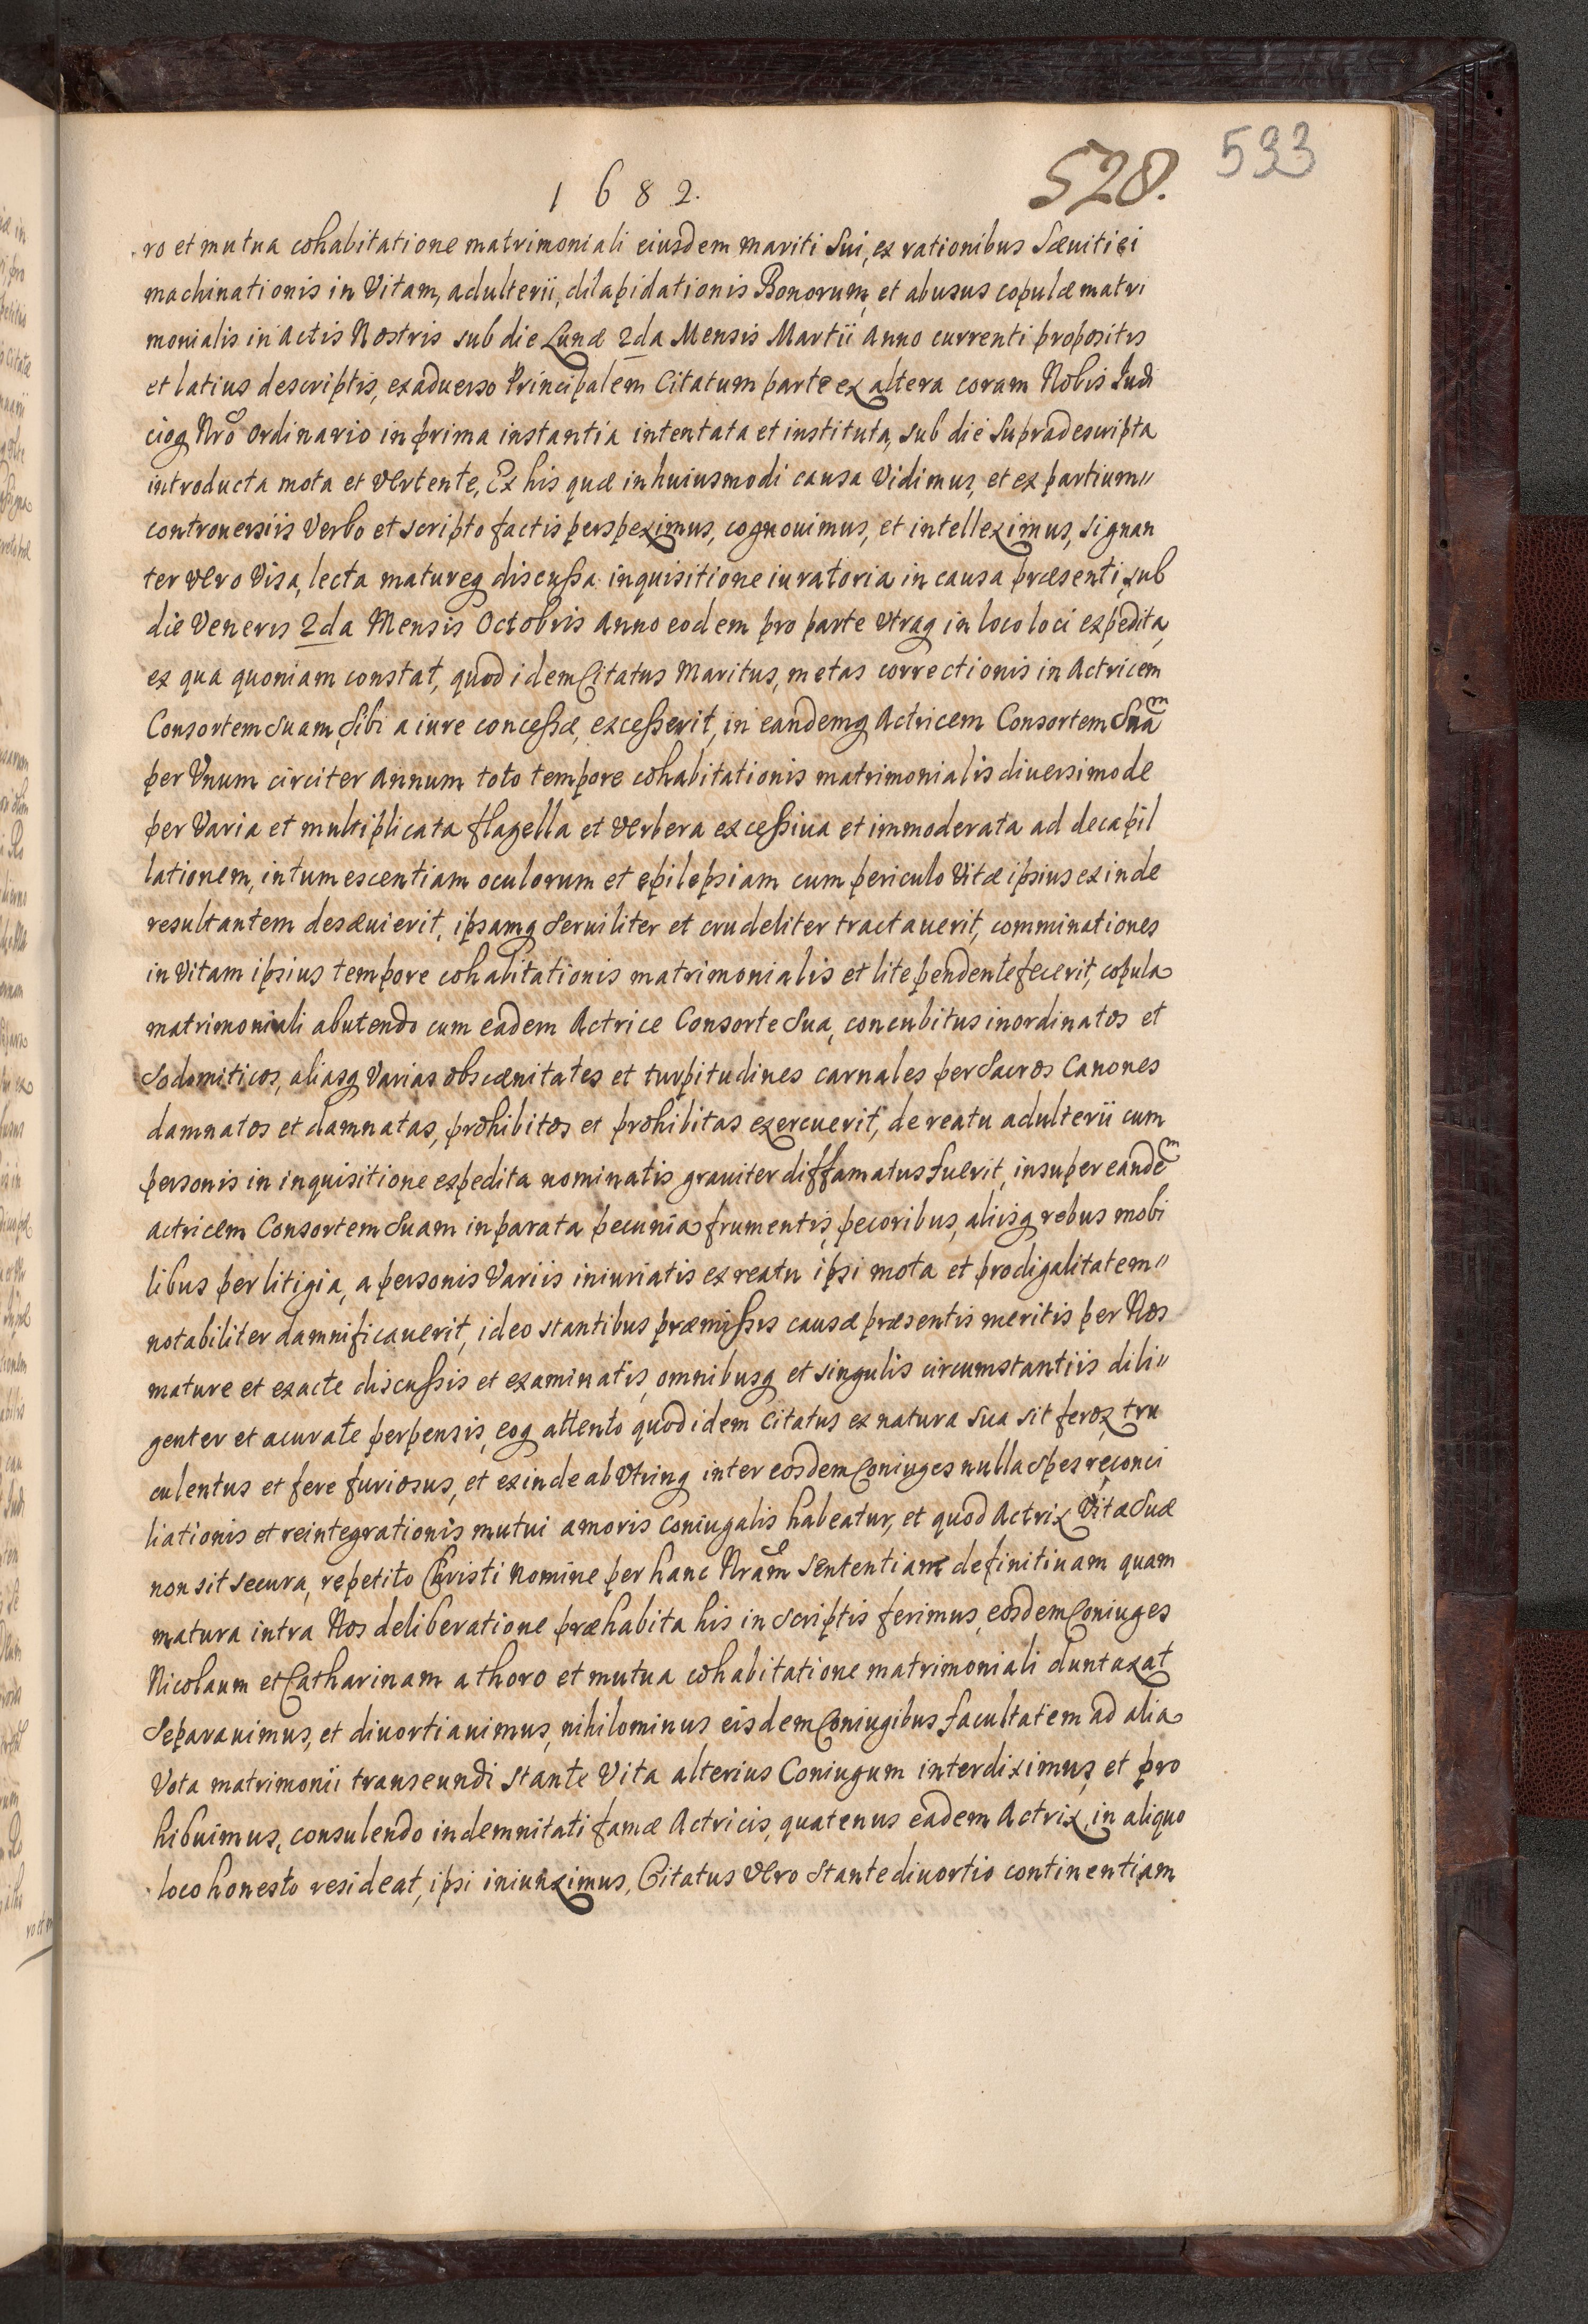 1682.
528.
533
ro et mutua cohabitatione matrimoniali eiusdem mariti Sui, ex rationibus Sæuitiei
machinationis in Vitam, adulterii, dilapidationis Bonorum, et abusus copulæ matri
monialis in Actis Nostris sub die Lunæ 2da Mensis Martii Anno currenti propositis
et latius descriptis, ex aduerso Principalem Citatum parte ex altera coram Nobis Iudi
cioq Nro ordinario in prima instantia intentata et instituta, sub die Supradescripta
introducta mota et vertente, Ex his quæ in huiusmodi causa Vidimus, et ex partium"
controuersiis Verbo et scripto factis perspeximus, cognouimus, et intelleximus, signan
ter vero Visa, lecta matureq discussa inquisitione iuratoria in causa præsenti, sub
die Veneris 2da Mensis Octobris Anno eodem pro parte Vtraq in loco loci expedita,
ex qua quoniam constat, quod idem Citatus Maritus, metas correctionis in Actricem
Consortem Suam, Sibi a iure concessæ, excesserit, in eandemq Actricem Consortem Suam
per Vnum circiter Annum toto tempore cohabitationis matrimonialis diuersimode
per Varia et multiplicata flagella et verbera excessiua et immoderata ad decapil
lationem, intumescentiam oculorum et epilepsiam cum periculo Vitæ ipsius exinde
resultantem desæuierit, ipsamq Seruiliter et crudeliter tractauerit, comminationes
in Vitam ipsius tempore cohabitationis matrimonialis et lite pendente fecerit, copula
matrimoniali abutendo cum eadem Actrice Consorte Sua, concubitus inordinatos et
Sodomiticos, aliasq Varias obscænitates et turpitudines carnales per Sacros Canones
damnatos et damnatas, prohibitos et prohibitas exercuerit, de reatu adulterii cum
personis in inquisitione expedita nominatis grauiter diffamatus fuerit, insuper eandem
actricem Consortem Suam in parata pecunia frumentis, pecoribus, aliisq rebus mobi
libus per litigia, a personis Variis iniuriatis ex reatu ipsi mota et prodigalitatem"
notabiliter damnificauerit, ideo stantibus præmissis causæ præsentis meritis per Nos
mature et exacte discussis et examinatis, omnibusq et singulis circumstantiis dili"
genter et acurate perpensis, eoq attento quod idem Citatus ex natura Sua sit ferox, tru
culentus et fere furiosus, et exinde ab Vtrinq inter eosdem Coniuges nulla Spes reconci
liationis et reintegrationis mutui amoris coniugalis habeatur, et quod Actrix Vitæ Suæ
non sit secura, repetito Christi Nomine per hanc Nram Sententiam definitiuam quam
matura intra Nos deliberatione præhabita his in Scriptis ferimus, eosdem Coniuges
Nicolaum et Catharinam a thoro et mutua cohabitatione matrimoniali duntaxat
Separauimus, et diuortiauimus, nihilominus eisdem Coniugibus facultatem ad alia
Vota matrimonii transeundi stante Vita alterius Coniugum interdiximus, et pro
hibuimus, consulendo indemnitati famæ Actricis, quatenus eadem Actrix, in aliquo
loco honesto resideat, ipsi iniunximus, Citatus vero Stante diuortio continentiam